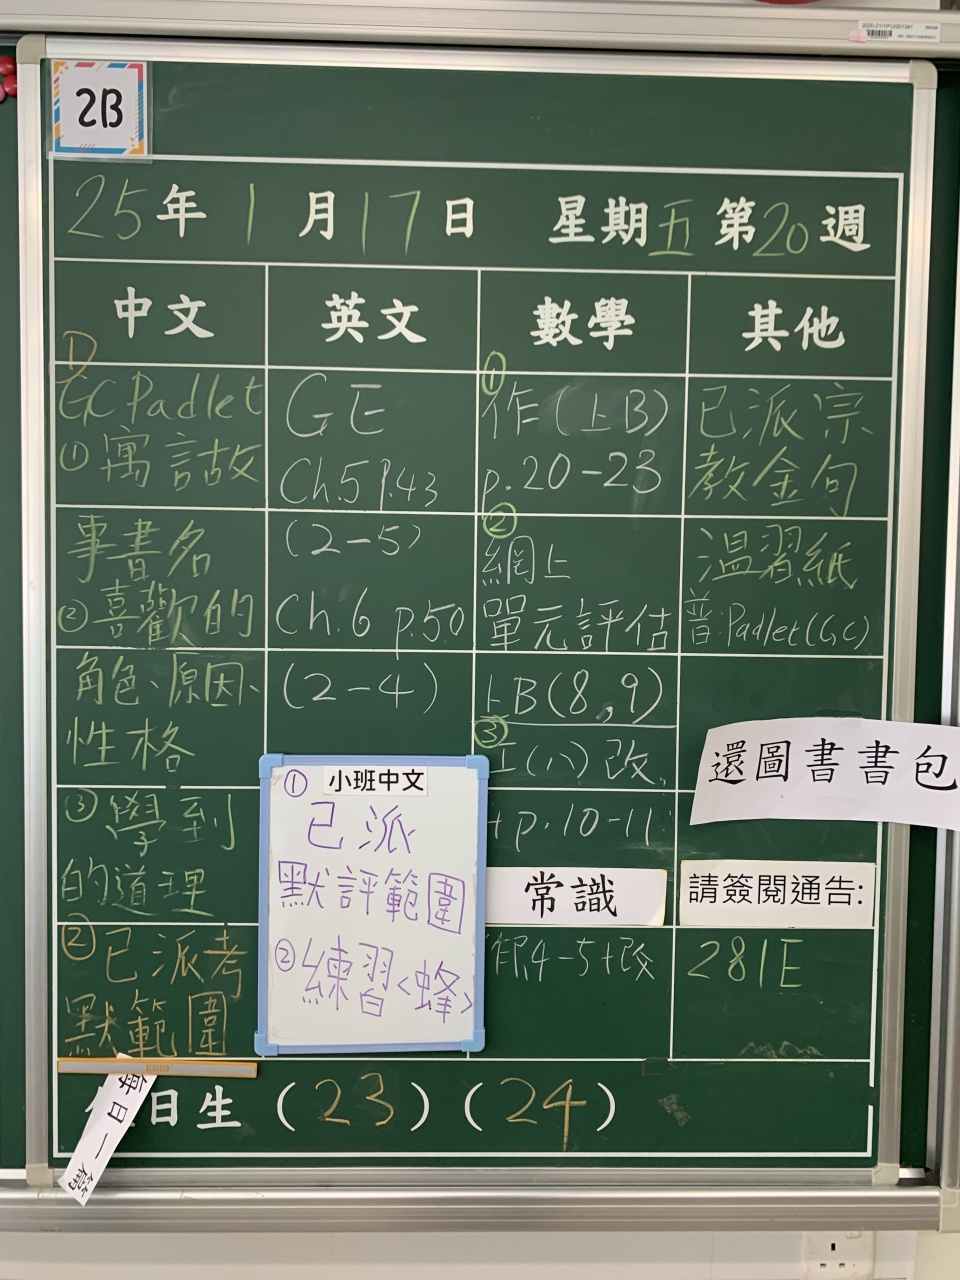 2B
25年1月17日 星期五第20週
中文
①
GC Padlet
①寓言故
事書名
②喜歡的
角色、原因、
性格
③學到
的道理
②已派考
默範圍
英文
GE
Ch.5 P.43
(2-5)
Ch.6 p.50
(2-4)
小班中文
①已派
默評範圍
②練習<蜂>
數學
①
作(上B)
p.20-23
②
網上
單元評估
上B(8,9)
③
工(八)改
+p.10-11
常識
作P.4-5+改
其他
已派宗
教金句
溫習紙
普:Padlet(GC)
還圖書書包
請簽閱通告:
281E
日生 (23)(24)
每日一篇